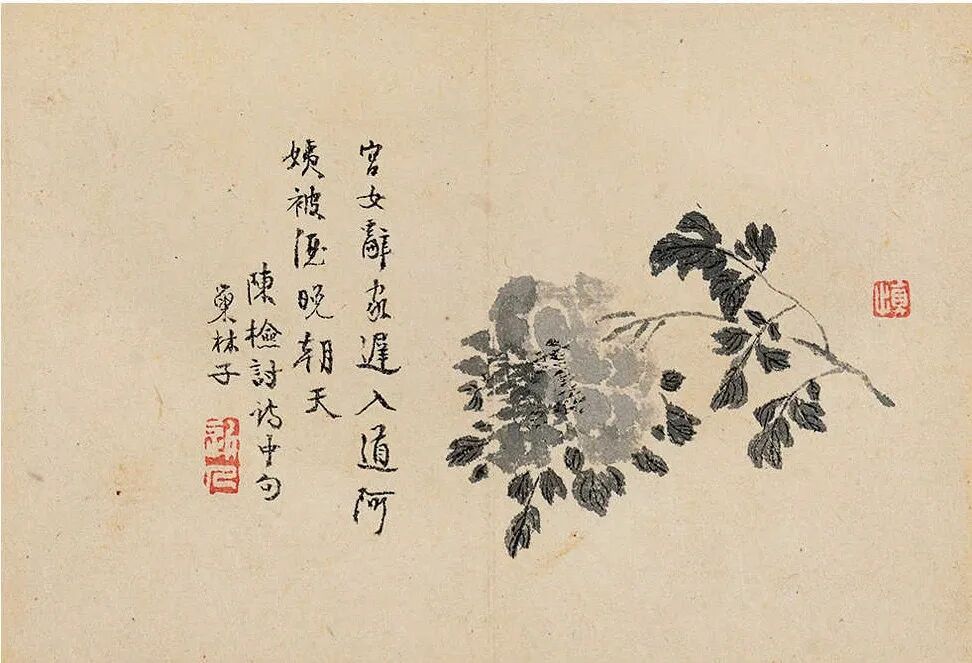 慎
宮女辭家遲入道阿
姨被酒晚朝天
陳檢討詩中句
巢林子